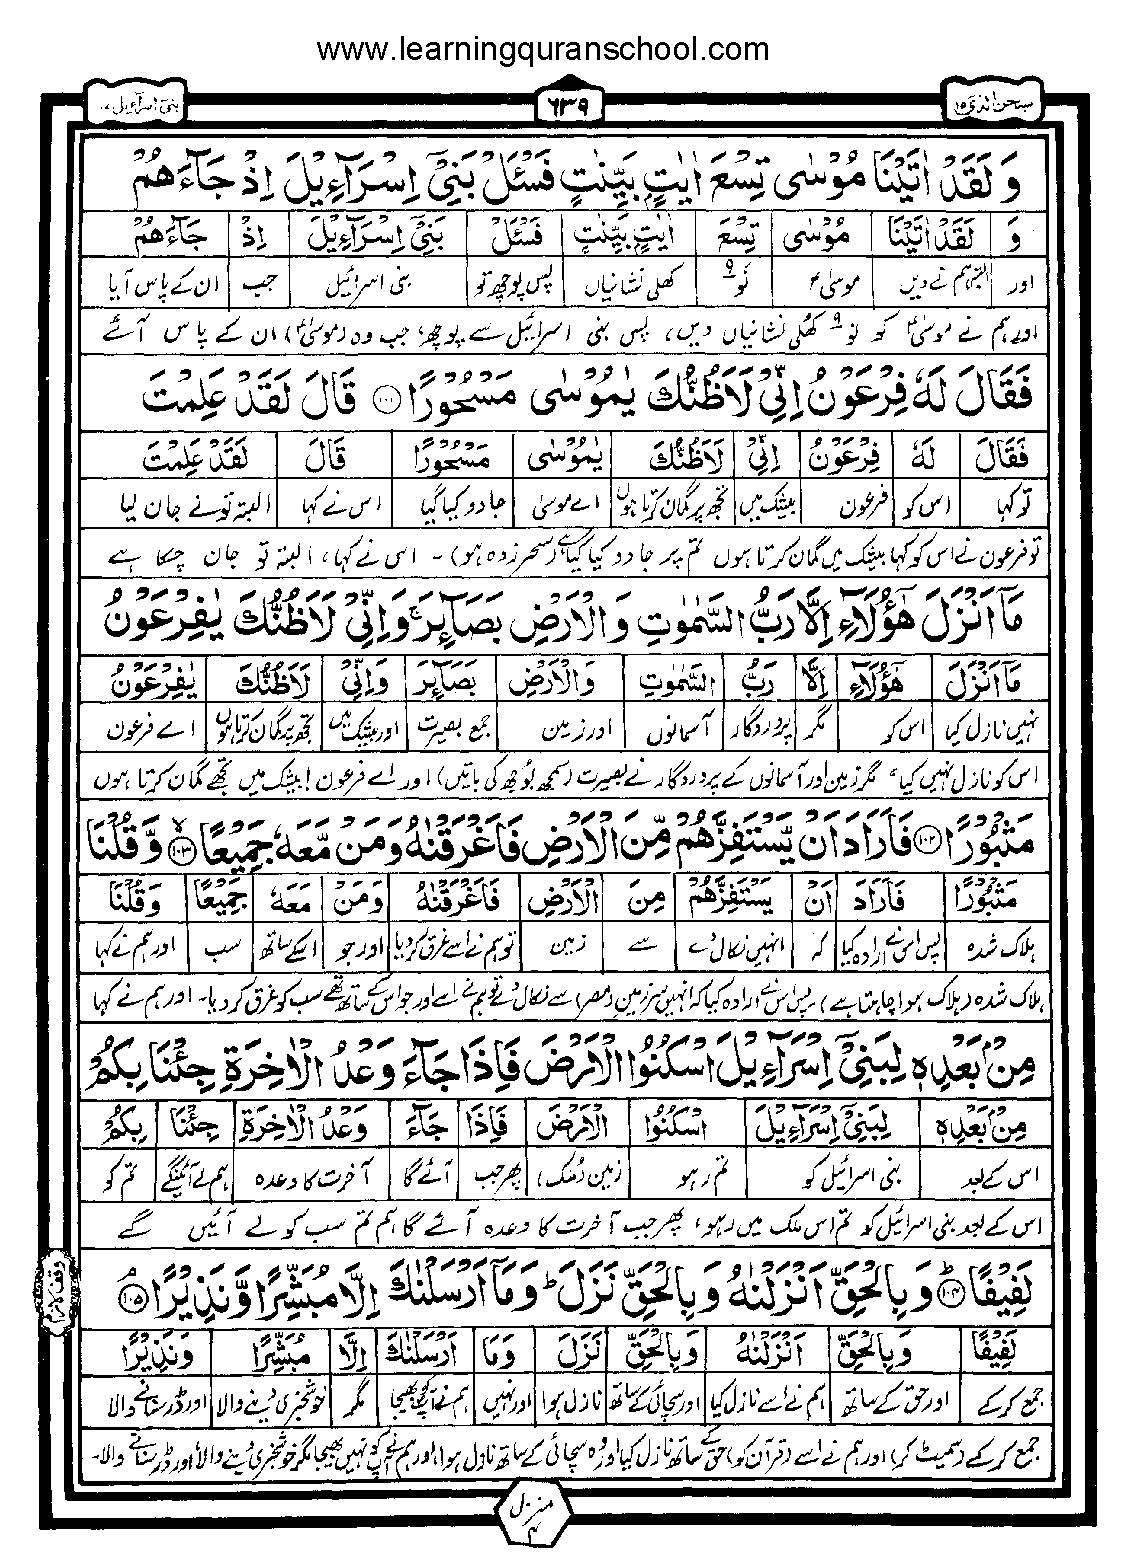 www.learningquranschool.com
سبحن الذی ١٥
٦٣٩
بنی اسرآءیل ١٧
وَ لَقَدْ اٰتَیْنَا مُوْسٰی تِسْعَ اٰیٰتٍۭ بَیِّنٰتٍ فَسْـَٔلْ بَنِیْۤ اِسْرَآءِیْلَ اِذْ جَآءَهُمْ
وَ لَقَدْ اٰتَیْنَا مُوْسٰی تِسْعَ اٰیٰتٍۭ بَیِّنٰتٍ فَسْـَٔلْ بَنِیْۤ اِسْرَآءِیْلَ اِذْ جَآءَهُمْ
اور البتہ ہم نے دیں موسیٰؑ نَو ۹ کھلی نشانیاں پس پوچھ تو بنی اسرائیل جب ان کے پاس آیا
اور ہم نے موسیٰؑ کو نَو ۹ کھُلی نشانیاں دیں، پس بنی اسرائیل سے پوچھ، جب وہ (موسیٰؑ) ان کے پاس آئے
فَقَالَ لَهٗ فِرْعَوْنُ اِنِّیْ لَاَظُنُّكَ یٰمُوْسٰی مَسْحُوْرًا ۝١٠١ قَالَ لَقَدْ عَلِمْتَ
فَقَالَ لَهٗ فِرْعَوْنُ اِنِّیْ لَاَظُنُّكَ یٰمُوْسٰی مَسْحُوْرًا قَالَ لَقَدْ عَلِمْتَ
تو کہا اس کو فرعون بیشک میں تجھ پر گمان کرتا ہوں اے موسیٰ جادو کیا گیا اس نے کہا البتہ تونے جان لیا
تو فرعون نے اس کو کہا بیشک میں گمان کرتا ہوں تم پر جادو کیا گیا ہے (سحر زدہ ہو)۔ اس نے کہا، البتہ تو جان چکا ہے
مَاۤ اَنْزَلَ هٰۤؤُلَآءِ اِلَّا رَبُّ السَّمٰوٰتِ وَ الْاَرْضِ بَصَآئِرَ ۚ وَ اِنِّیْ لَاَظُنُّكَ یٰفِرْعَوْنُ
مَاۤ اَنْزَلَ هٰۤؤُلَآءِ اِلَّا رَبُّ السَّمٰوٰتِ وَالْاَرْضِ بَصَآئِرَ وَاِنِّیْ لَاَظُنُّكَ یٰفِرْعَوْنُ
نہیں نازل کیا اس کو مگر پروردگار آسمانوں اور زمین جمع بصیرت اور بیشک میں تجھ پر گمان کرتا ہوں اے فرعون
اس کو نازل نہیں کیا مگر زمین اور آسمانوں کے پروردگار نے بصیرت (سمجھ بوُجھ کی باتیں) اور اے فرعون! بیشک میں تجھے گمان کرتا ہوں
مَثْبُوْرًا ۝١٠٢ فَاَرَادَ اَنْ یَّسْتَفِزَّهُمْ مِّنَ الْاَرْضِ فَاَغْرَقْنٰهُ وَمَنْ مَّعَهٗ جَمِیْعًا ۝١٠٣ وَّقُلْنَا
مَثْبُوْرًا فَاَرَادَ اَنْ یَّسْتَفِزَّهُمْ مِنَ الْاَرْضِ فَاَغْرَقْنٰهُ وَمَنْ مَّعَهٗ جَمِیْعًا وَّقُلْنَا
ہلاک شدہ پس اس نے ارادہ کیا کہ انہیں نکال دے سے زمین تو ہم نے اسے غرق کر دیا اور جو اسکے ساتھ سب اور ہم نے کہا
ہلاک شدہ (ہلاک ہوا چاہتا ہے) پس اس نے ارادہ کیا کہ انہیں سرزمین (مصر) سے نکال دے تو ہم نے اسے اور جو اس کے ساتھ تھے سب کو غرق کر دیا۔ اور ہم نے کہا
مِنْۢ بَعْدِهٖ لِبَنِیْۤ اِسْرَآءِیْلَ اسْكُنُوا الْاَرْضَ فَاِذَا جَآءَ وَعْدُ الْاٰخِرَةِ جِئْنَا بِكُمْ
مِنْۢ بَعْدِهٖ لِبَنِیْۤ اِسْرَآءِیْلَ اسْكُنُوا الْاَرْضَ فَاِذَا جَآءَ وَعْدُ الْاٰخِرَةِ جِئْنَا بِكُمْ
اس کے بعد بنی اسرائیل کو تم رہو زمین (ملک) پھر جب آئے گا آخرت کا وعدہ ہم لے آئینگے تم کو
اس کے بعد بنی اسرائیل کو تم اس ملک میں رہو، پھر جب آخرت کا وعدہ آئے گا ہم تم سب کو لے آئیں گے
لَفِیْفًا ۝١٠٤ وَبِالْحَقِّ اَنْزَلْنٰهُ وَبِالْحَقِّ نَزَلَ ؕ وَمَاۤ اَرْسَلْنٰكَ اِلَّا مُبَشِّرًا وَّنَذِیْرًا ۝١٠٥
لَفِیْفًا وَبِالْحَقِّ اَنْزَلْنٰهُ وَبِالْحَقِّ نَزَلَ وَمَاۤ اَرْسَلْنٰكَ اِلَّا مُبَشِّرًا وَّنَذِیْرًا
جمع کر کے اور حق کے ساتھ ہم نے اسے نازل کیا اور سچائی کے ساتھ نازل ہوا اور نہیں ہم نے آپ کو بھیجا مگر خوشخبری دینے والا اور ڈر سنانے والا
جمع کر کے (سمیٹ کر) اور ہم نے اسے (قرآن کو) حق کے ساتھ نازل کیا اور وہ سچائی کے ساتھ نازل ہوا، اور ہم نے آپ کو نہیں بھیجا مگر خوشخبری دینے والا اور ڈر سنانے والا۔
منزل ۴